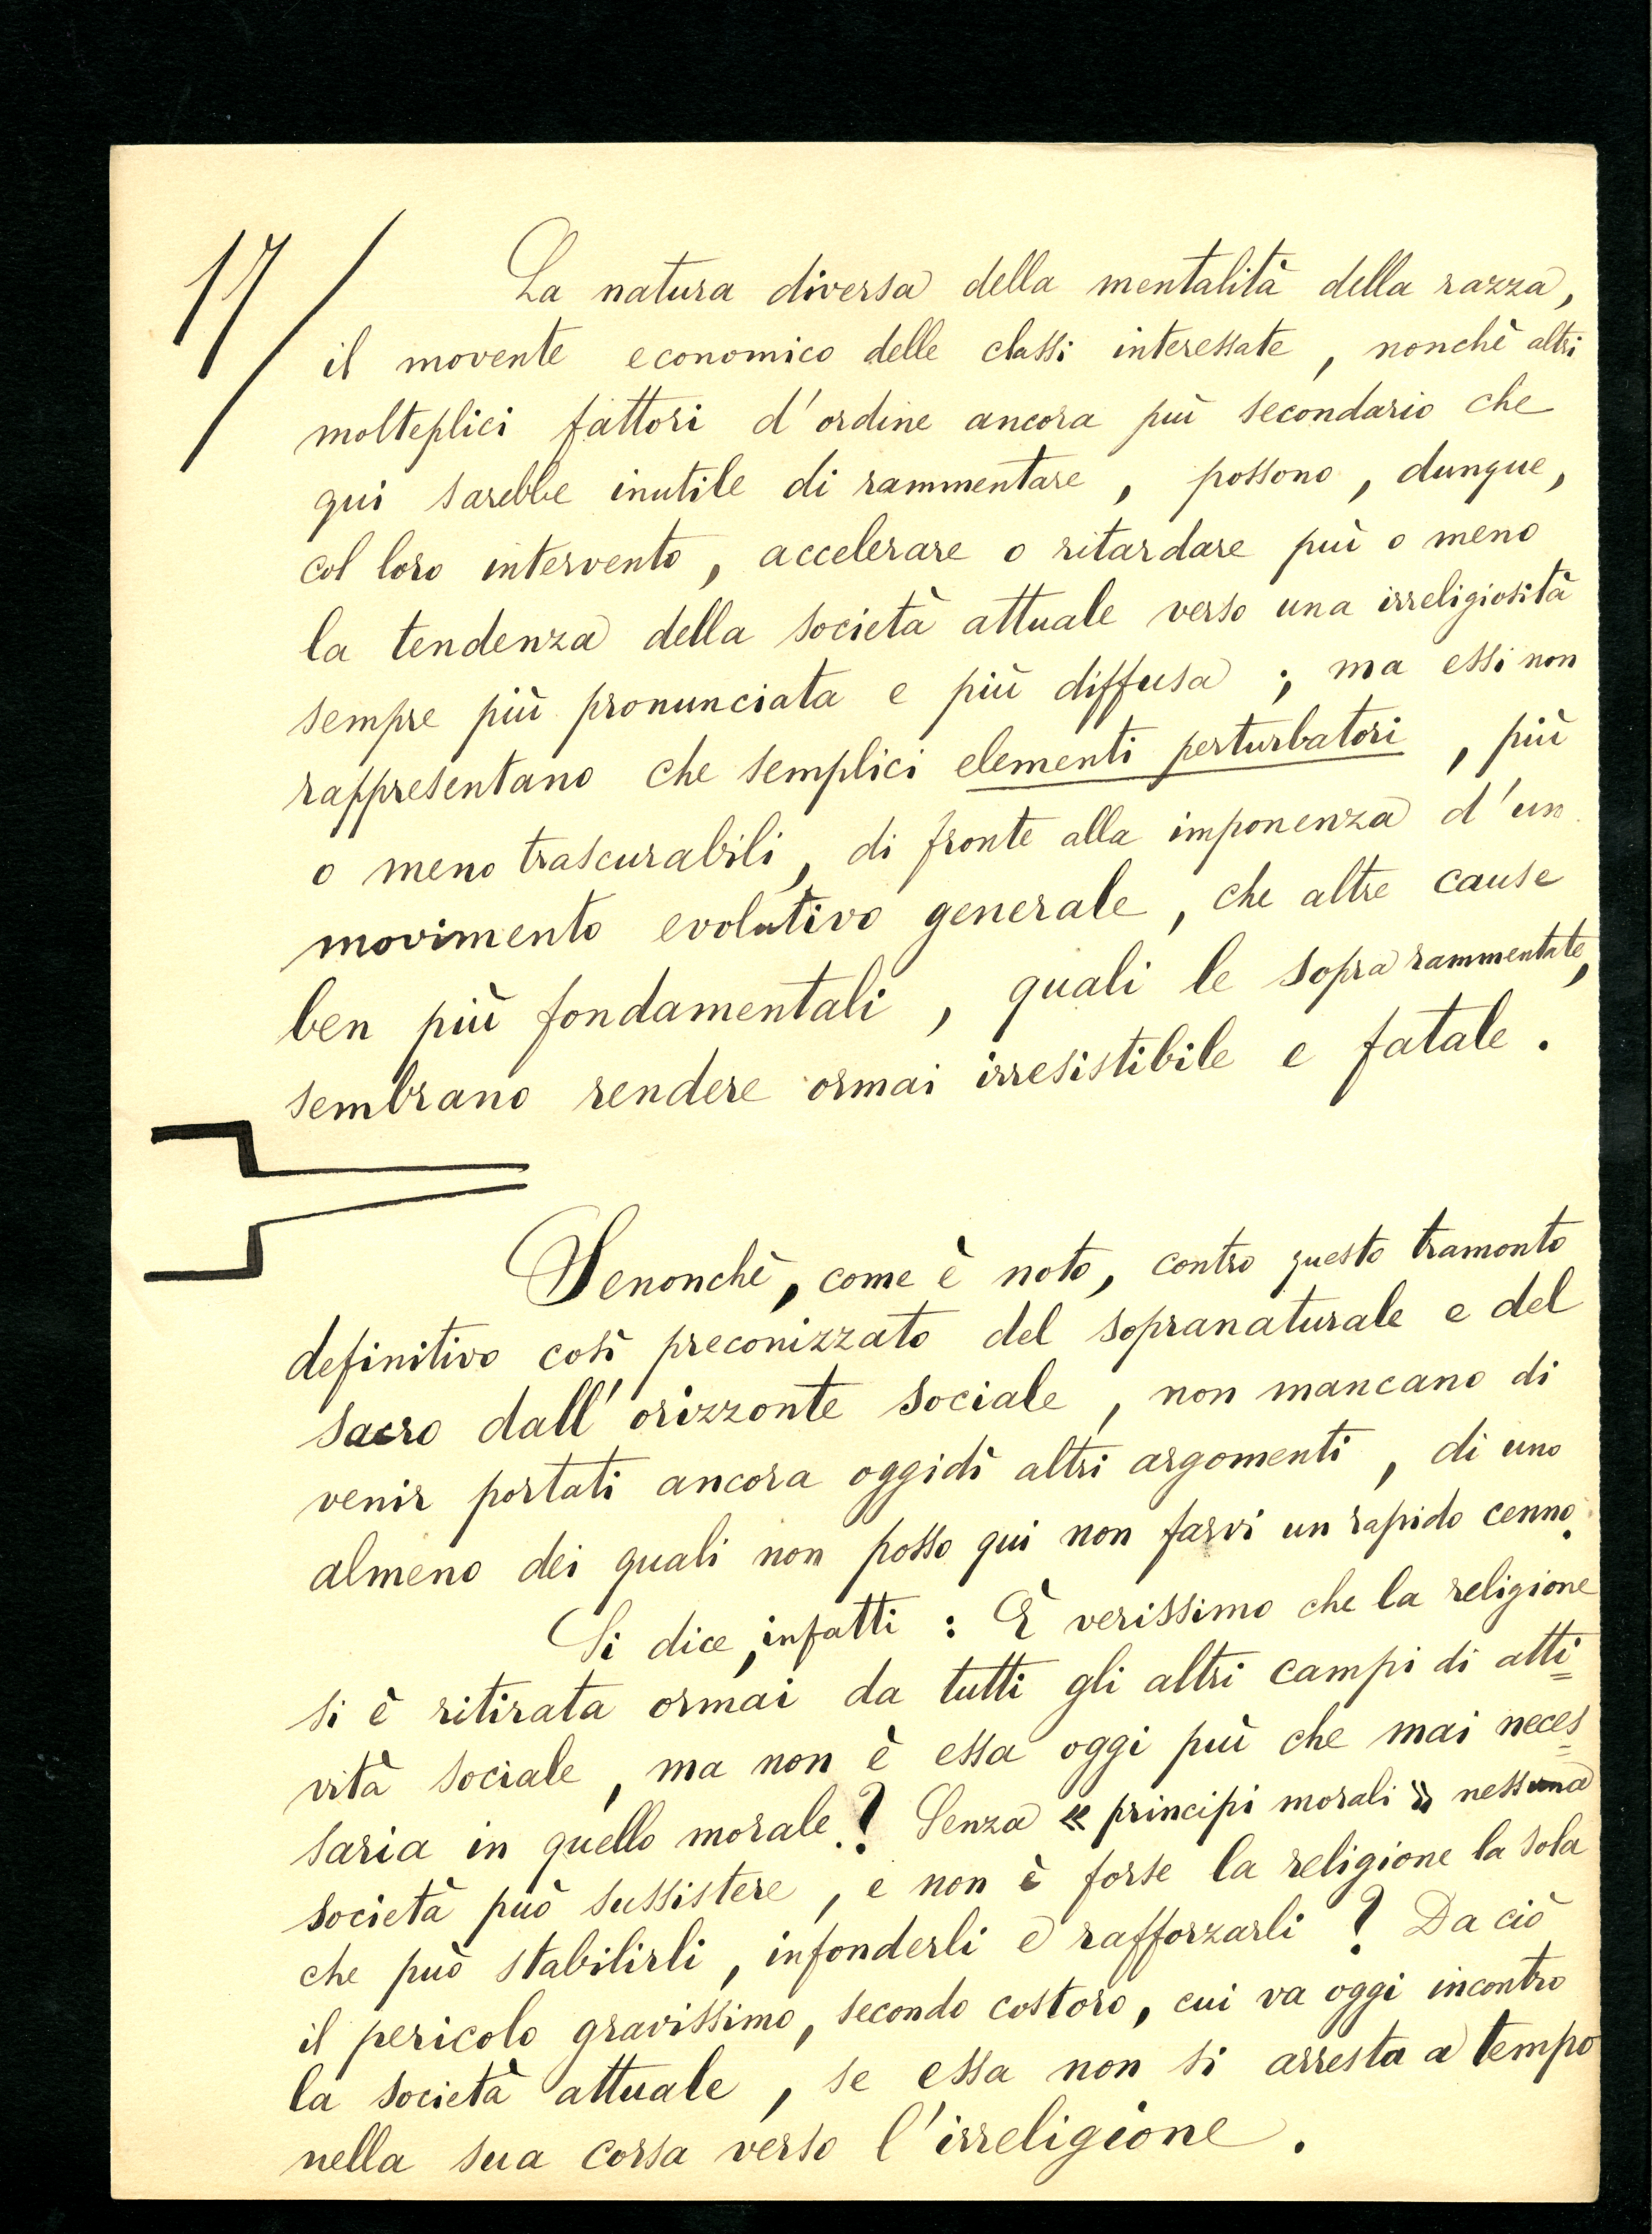 17/
La natura diversa della mentalità della razza,
il movente economico delle classi interessate, nonchè altri
molteplici fattori d'ordine ancora più secondario che
qui sarebbe inutile di rammentare, possono, dunque,
col loro intervento, accelerare o ritardare più o meno
la tendenza della società attuale verso una irreligiosità
sempre più pronunciata e più diffusa; ma essi non
rappresentano che semplici elementi perturbatori, più
o meno trascurabili, di fronte alla imponenza d'un
movimento evolutivo generale, che altre cause
ben più fondamentali, quali le sopra rammentate,
sembrano rendere ormai irresistibile e fatale.
Senonchè, come è noto, contro questo tramonto
definitivo così preconizzato del sopranaturale e del
sacro dall'orizzonte sociale, non mancano di
venir portati ancora oggidì altri argomenti, di uno
almeno dei quali non posso qui non farvi un rapido cenno.
Si dice, infatti: È verissimo che la religione
si è ritirata ormai da tutti gli altri campi di atti=
vità sociale, ma non è essa oggi più che mai neces=
saria in quello morale? Senza « principi morali » nessuna
società può sussistere, e non è forse la religione la sola
che può stabilirli, infonderli e rafforzarli? Da ciò
il pericolo gravissimo, secondo costoro, cui va oggi incontro
la società attuale, se essa non si arresta a tempo
nella sua corsa verso l'irreligione.